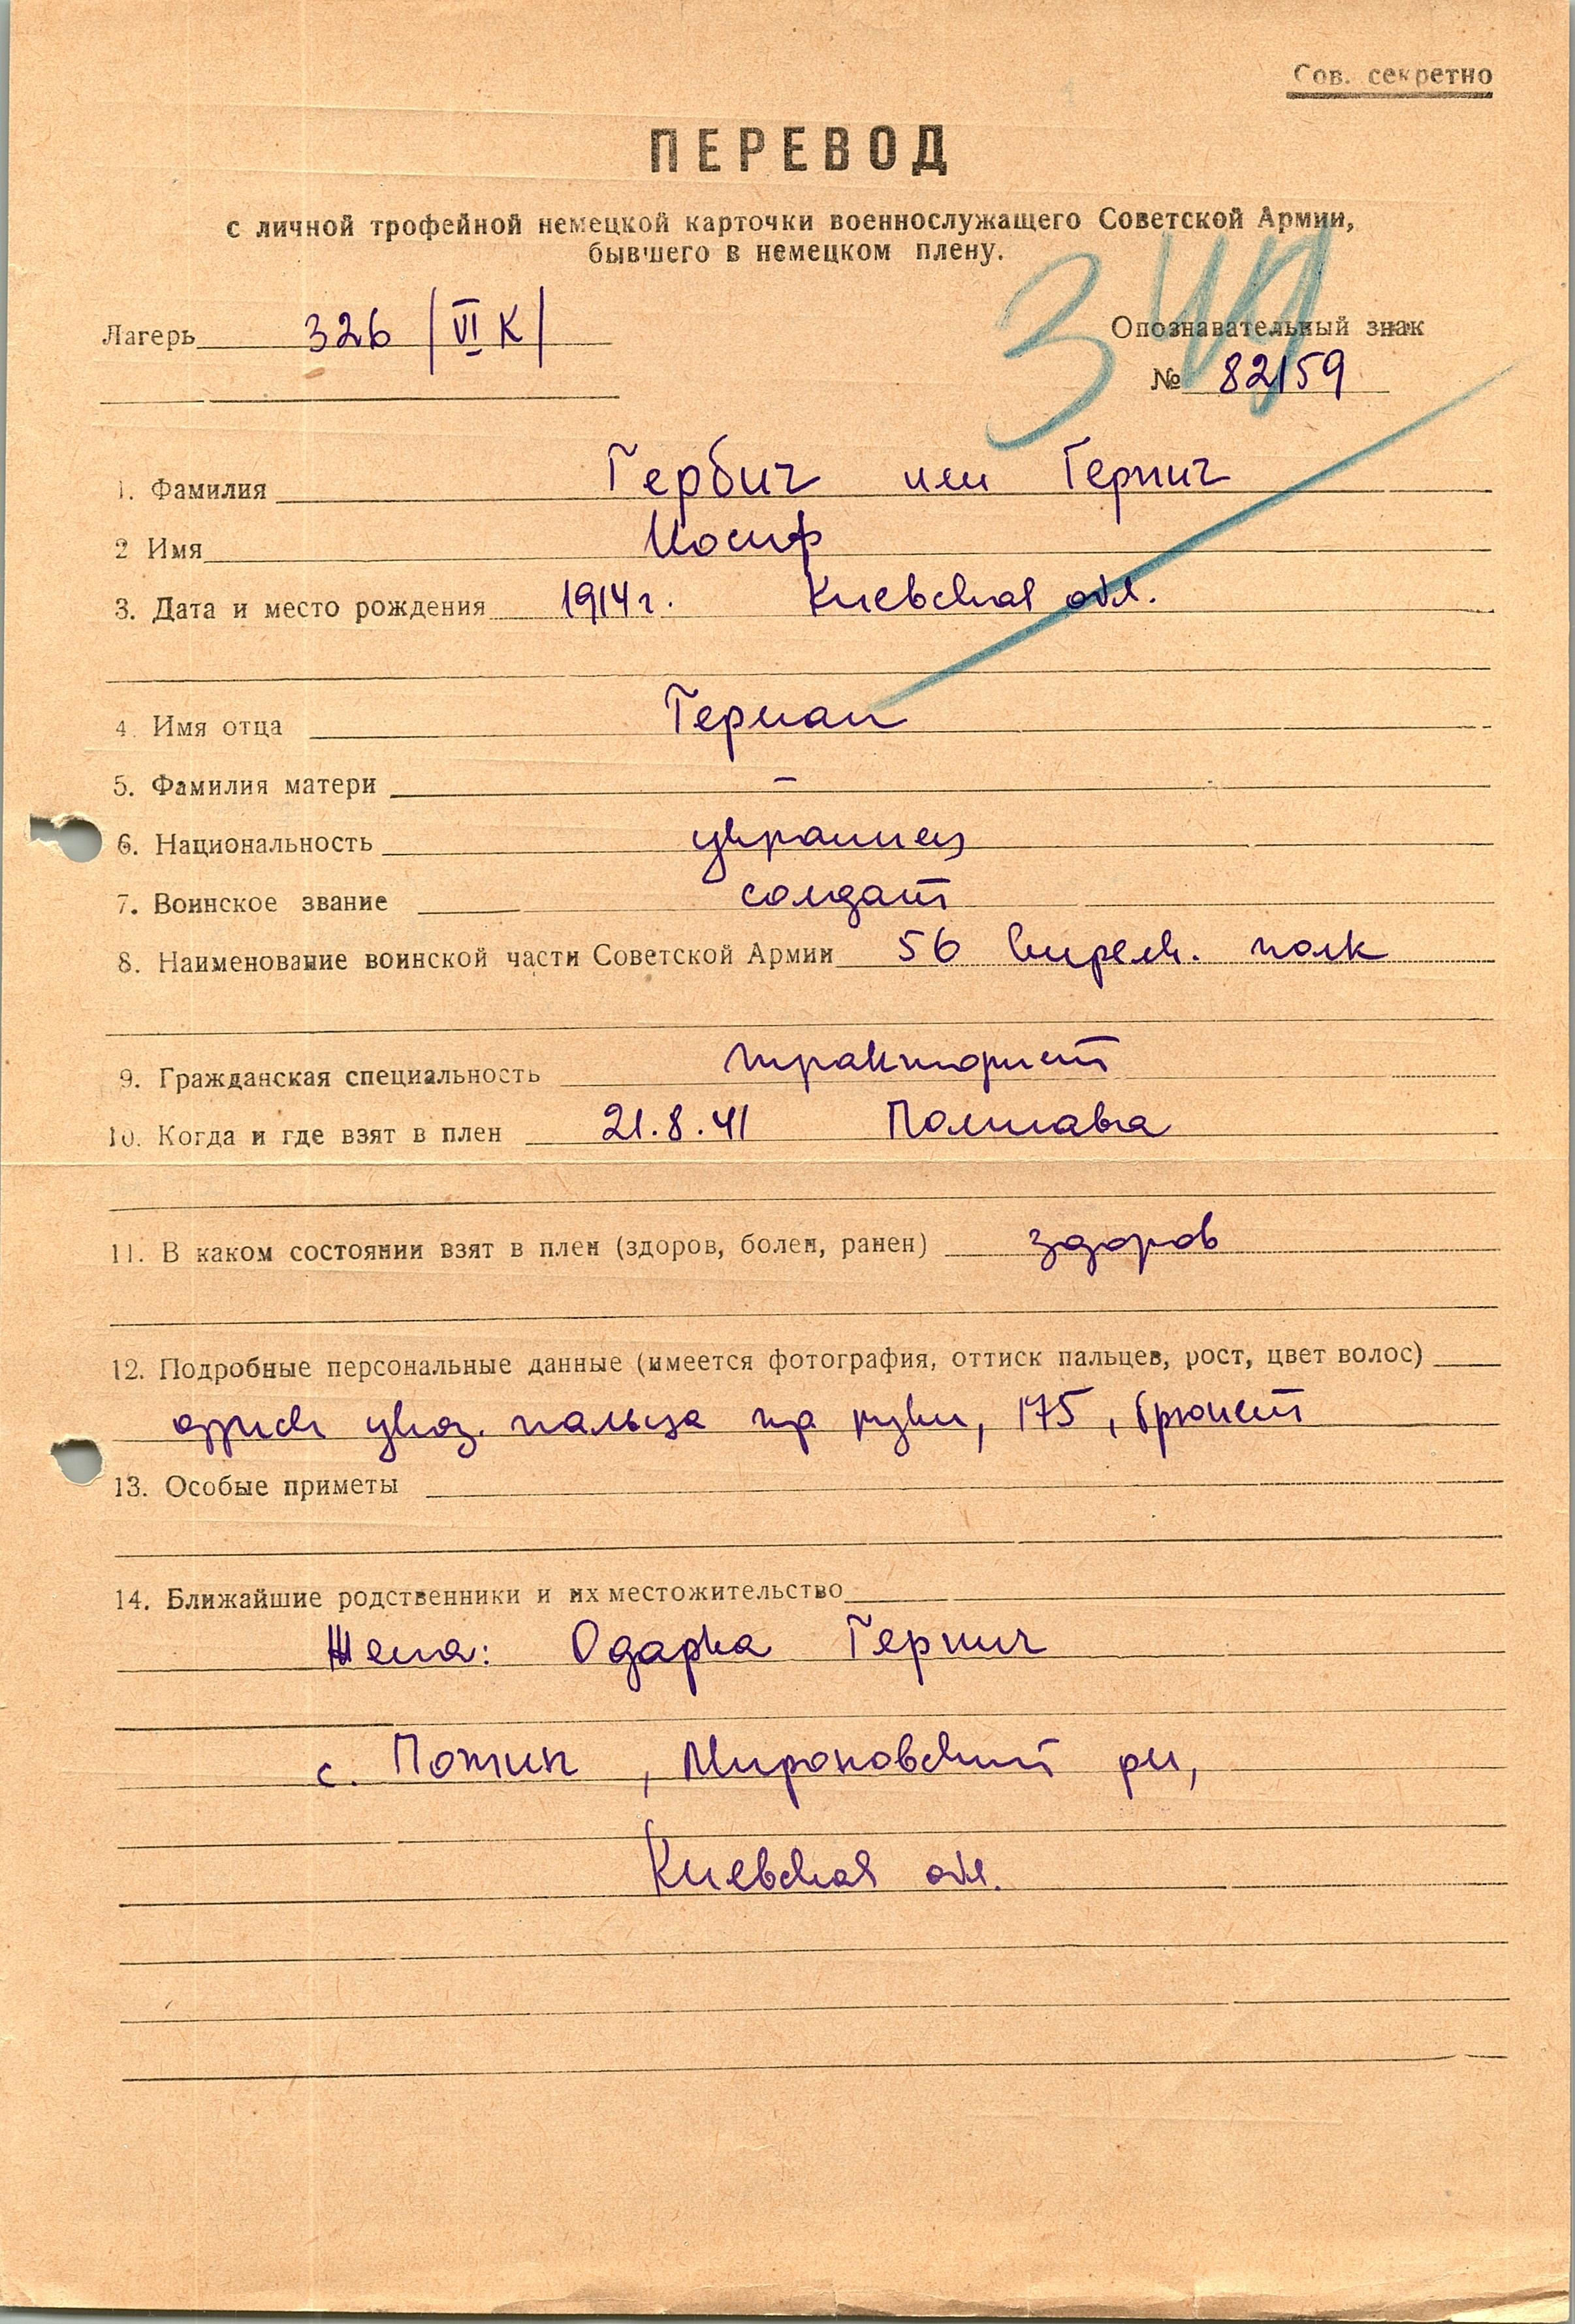 Сов. секретно
ПЕРЕВОД
с личной трофейной немецкой карточки военнослужащего Советской Армии,
бывшего в немецком плену.
Лагерь 326 /VI К/
Опознавательный знак
№ 82159
1. Фамилия Гербич или Герпич
2 Имя Иосиф
3. Дата и место рождения 1914 г. Киевская обл.
4. Имя отца Герман
5. Фамилия матери –
6. Национальность украинец
7. Воинское звание солдат
8. Наименование воинской части Советской Армии 56 стрелк. полк
9. Гражданская специальность тракторист
10. Когда и где взят в плен 21.8.41 Полтавка
11. В каком состоянии взят в плен (здоров, болен, ранен) здоров
12. Подробные персональные данные (имеется фотография, оттиск пальцев, рост, цвет волос)
оттиск указ. пальца пр руки, 175, брюнет
13. Особые приметы
14. Ближайшие родственники и их местожительство
Жена: Одарка Герпич
с. Потик, Мироновский рн,
Киевская обл.